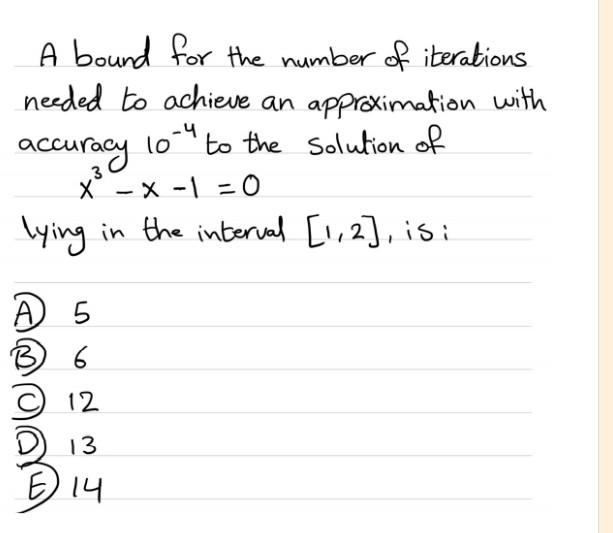 A bound for the number of iterations
needed to achieve an approximation with
accuracy 10⁻⁴ to the solution of
x³ - x - 1 = 0
lying in the interval [1,2], is:
A 5
B 6
C 12
D 13
E 14